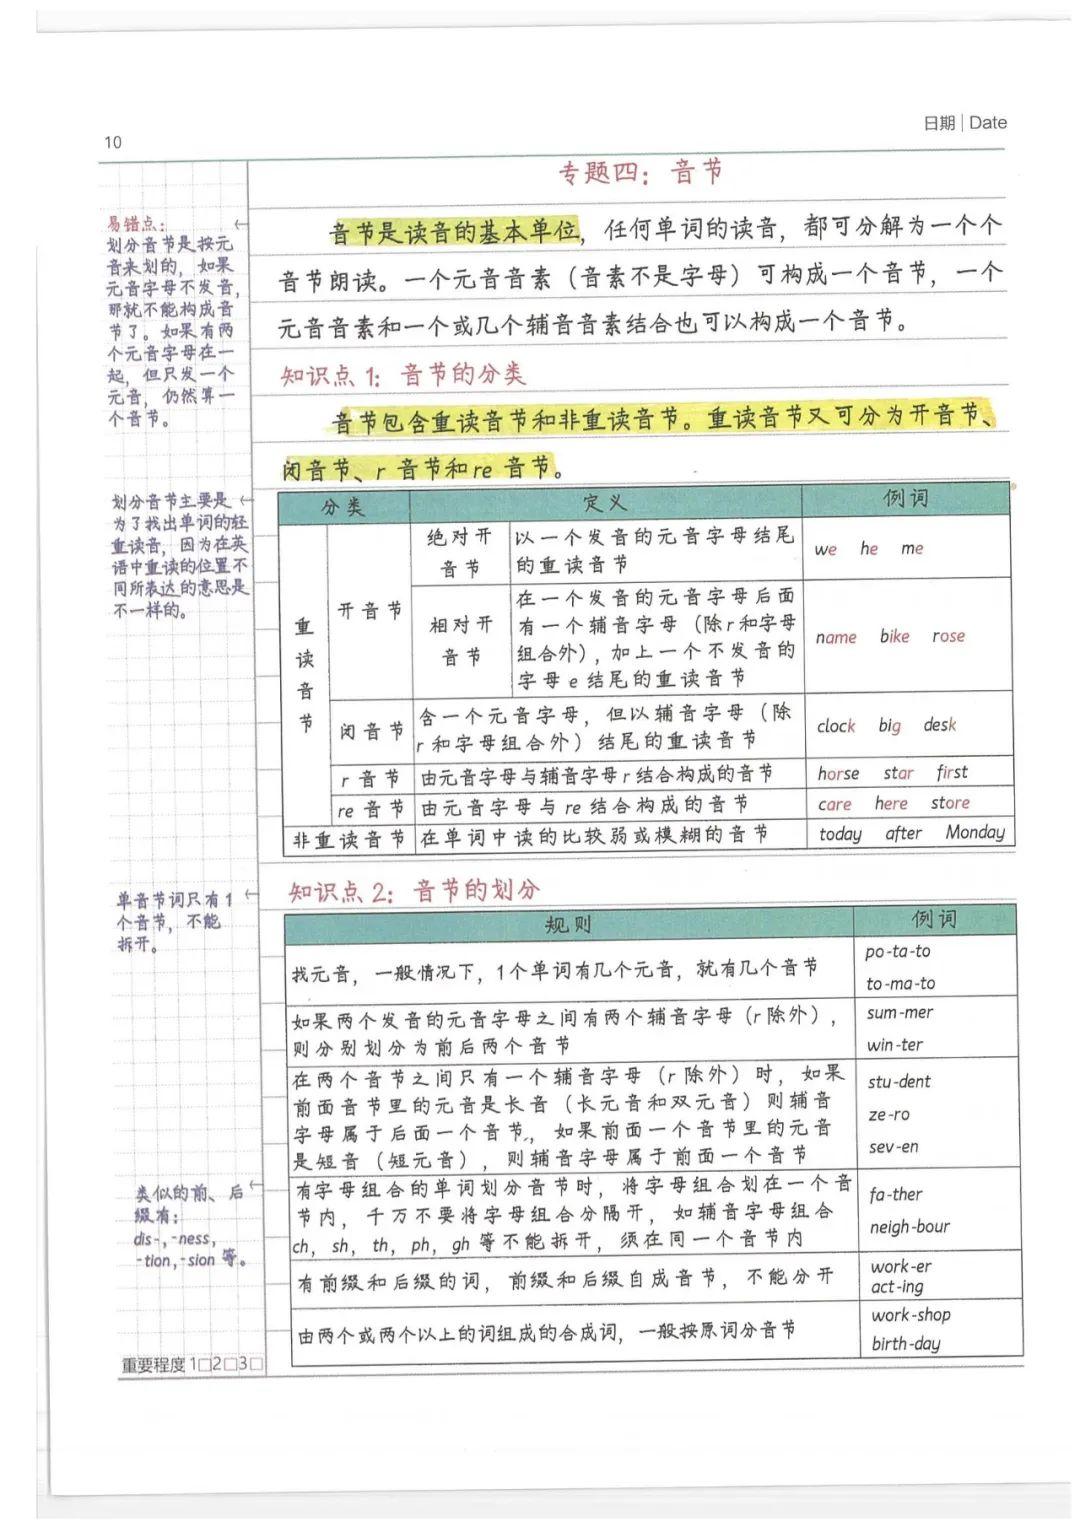 日期 | Date
10
专题四：音节
音节是读音的基本单位，任何单词的读音，都可分解为一个个
音节朗读。一个元音音素（音素不是字母）可构成一个音节，一个
元音音素和一个或几个辅音音素结合也可以构成一个音节。
易错点：
划分音节是按元
音来划的，如果
元音字母不发音，
那就不能构成音
节了。如果有两
个元音字母在一
起，但只发一个
元音，仍然算一
个音节。
知识点 1：音节的分类
音节包含重读音节和非重读音节。重读音节又可分为开音节、
闭音节、r 音节和 re 音节。
划分音节主要是
为了找出单词的轻
重读音，因为在英
语中重读的位置不
同所表达的意思是
不一样的。
分类 定义 例词
重读音节
开音节
绝对开
音节
以一个发音的元音字母结尾
的重读音节
we he me
相对开
音节
在一个发音的元音字母后面
有一个辅音字母（除r和字母
组合外），加上一个不发音的
字母 e 结尾的重读音节
name bike rose
闭音节
含一个元音字母，但以辅音字母（除
r 和字母组合外）结尾的重读音节
clock big desk
r 音节 由元音字母与辅音字母r结合构成的音节 horse star first
re 音节 由元音字母与 re 结合构成的音节 care here store
非重读音节 在单词中读的比较弱或模糊的音节 today after Monday
知识点 2：音节的划分
单音节词只有1
个音节，不能
拆开。
规则 例词
找元音，一般情况下，1个单词有几个元音，就有几个音节
po-ta-to
to-ma-to
如果两个发音的元音字母之间有两个辅音字母（r 除外），
则分别划分为前后两个音节
sum-mer
win-ter
在两个音节之间只有一个辅音字母（r 除外）时，如果
前面音节里的元音是长音（长元音和双元音）则辅音
字母属于后面一个音节，如果前面一个音节里的元音
是短音（短元音），则辅音字母属于前面一个音节
stu-dent
ze-ro
sev-en
有字母组合的单词划分音节时，将字母组合划在一个音
节内，千万不要将字母组合分隔开，如辅音字母组合
ch，sh，th，ph，gh 等不能拆开，须在同一个音节内
fa-ther
neigh-bour
类似的前、后
缀有：
dis-, -ness,
-tion, -sion 等。
有前缀和后缀的词，前缀和后缀自成音节，不能分开
work-er
act-ing
由两个或两个以上的词组成的合成词，一般按原词分音节
work-shop
birth-day
重要程度 1□2□3□